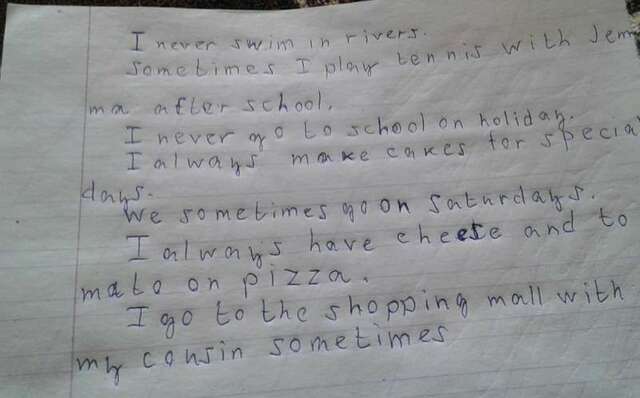 I never swim in rivers.
Sometimes I play tennis with Jem
ma after school.
I never go to school on holiday.
I always make cakes for specia
days.
We sometimes go on Saturdays.
I always have cheese and to
mato on pizza.
I go to the shopping mall with
my cousin sometimes